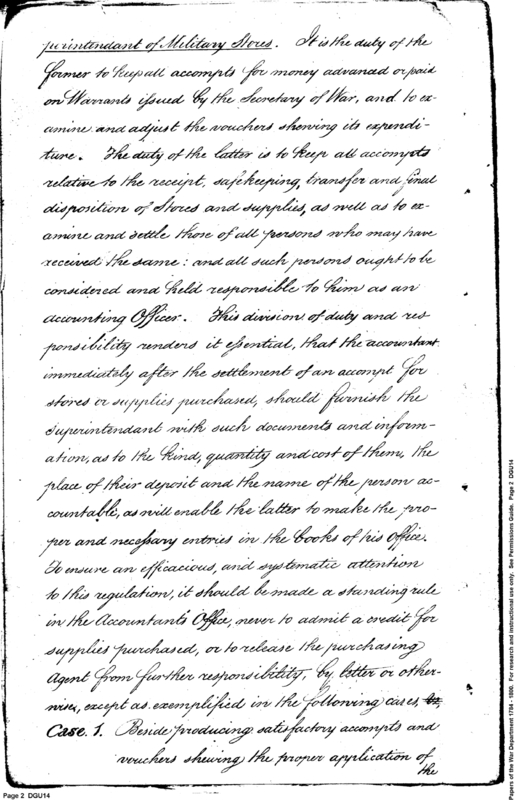 perintendant of Military Stores. It is the duty of the
former to keep all accompts for money advanced or paid
on Warrants issued by the Secretary of War, and to ex-
amine and adjust the vouchers shewing its expendi-
ture. The duty of the latter is to keep all accompts
relative to the receipt, safekeeping, transfer and final
disposition of Stores and supplies, as well as to ex-
amine and settle those of all persons who may have
received the same: and all such persons ought to be
considered and held responsible to him as an
accounting Officer. This division of duty and res-
ponsibility renders it essential, that the accountant
immediately after the settlement of an accompt for
stores or supplies purchased, should furnish the
Superintendant with such documents and inform-
ation, as to the kind, quantity and cost of them, the
place of their deposit and the name of the person ac-
countable, as will enable the latter to make the pro-
per and necessary entries in the books of his Office.
To ensure an efficacious, and systematic attention
to this regulation, it should be made a standing rule
in the Accountants Office, never to admit a credit for
supplies purchased, or to release the purchasing
Agent from further responsibility, by letter or other-
wise, except as exemplified in the following cases,
Case. 1. Beside producing satisfactory accompts and
vouchers shewing the proper application of
the
Page 2 DGU14
Papers of the War Department 1784 - 1800. For research and instructional use only. See Permissions Guide. Page 2 DGU14